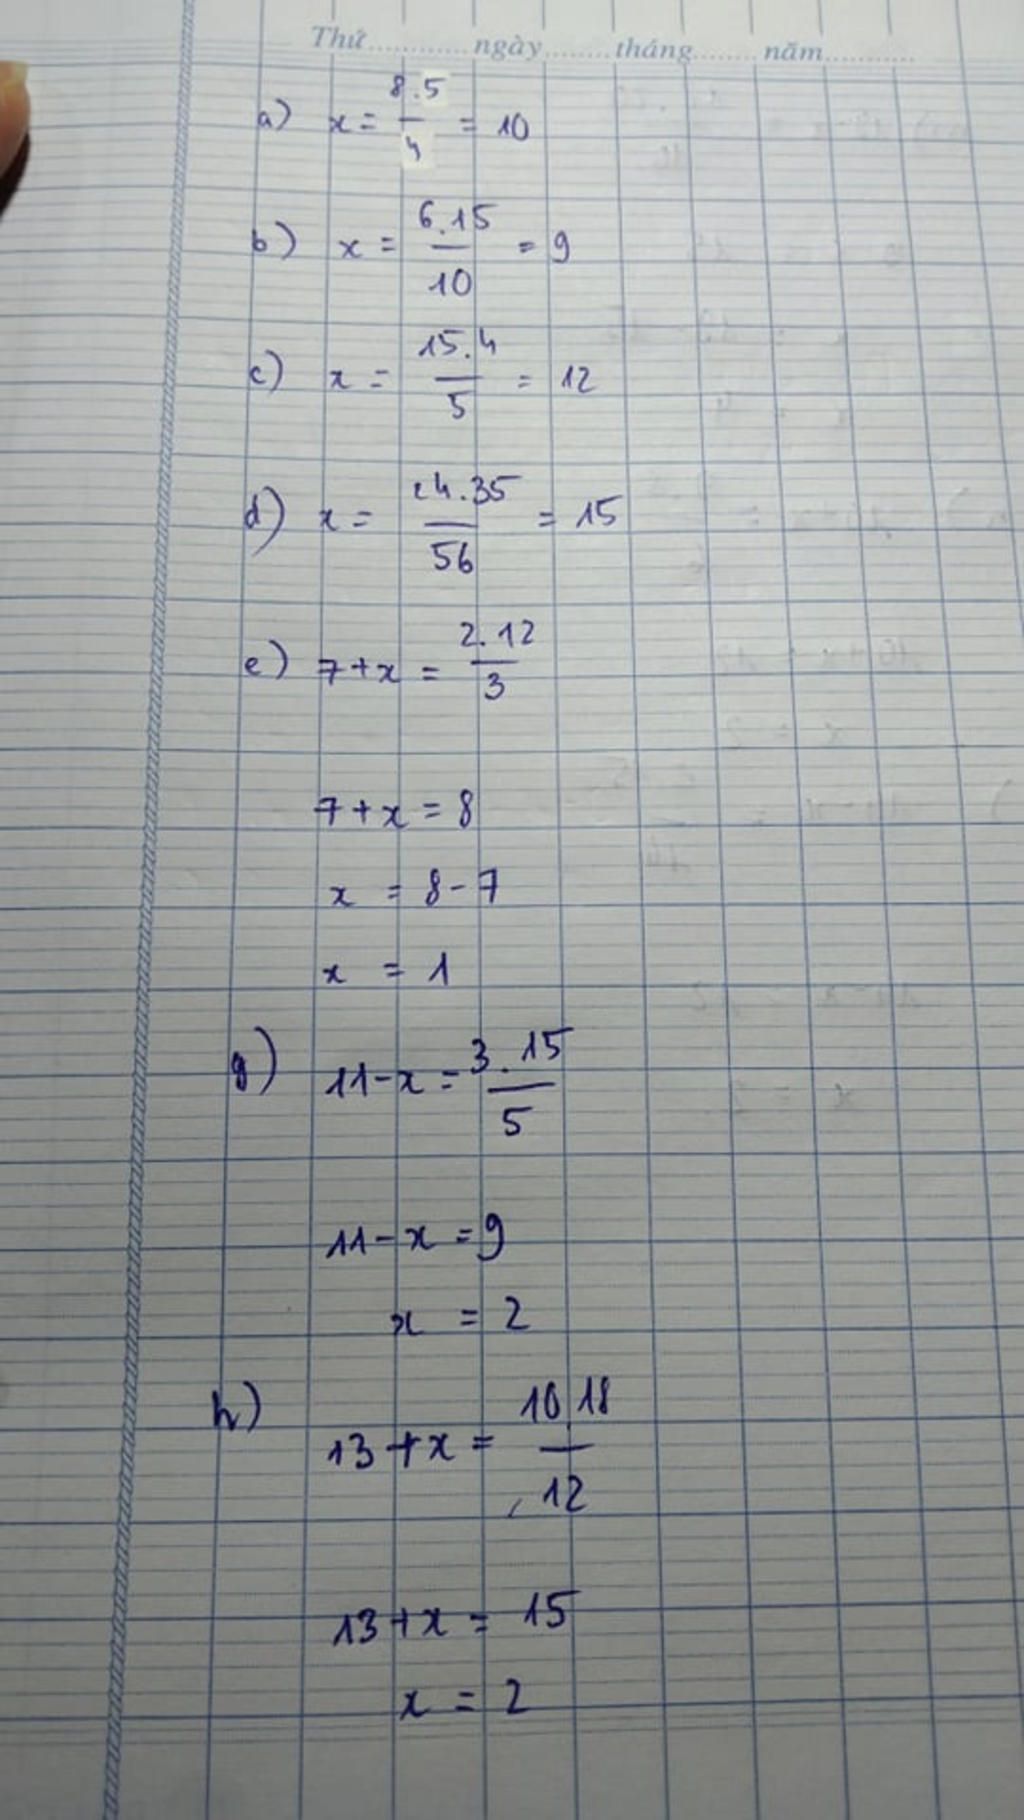 Thứ............ ngày........tháng........ năm............
a) x = 8.5/4 = 10
b) x = 6.15/10 = 9
c) x = 15.4/5 = 12
d) x = 24.35/56 = 15
e) 7+x = 2.12/3
7+x = 8
x = 8-7
x = 1
g) 11-x = 3.15/5
11-x = 9
x = 2
h) 13+x = 10.18/12
13+x = 15
x = 2